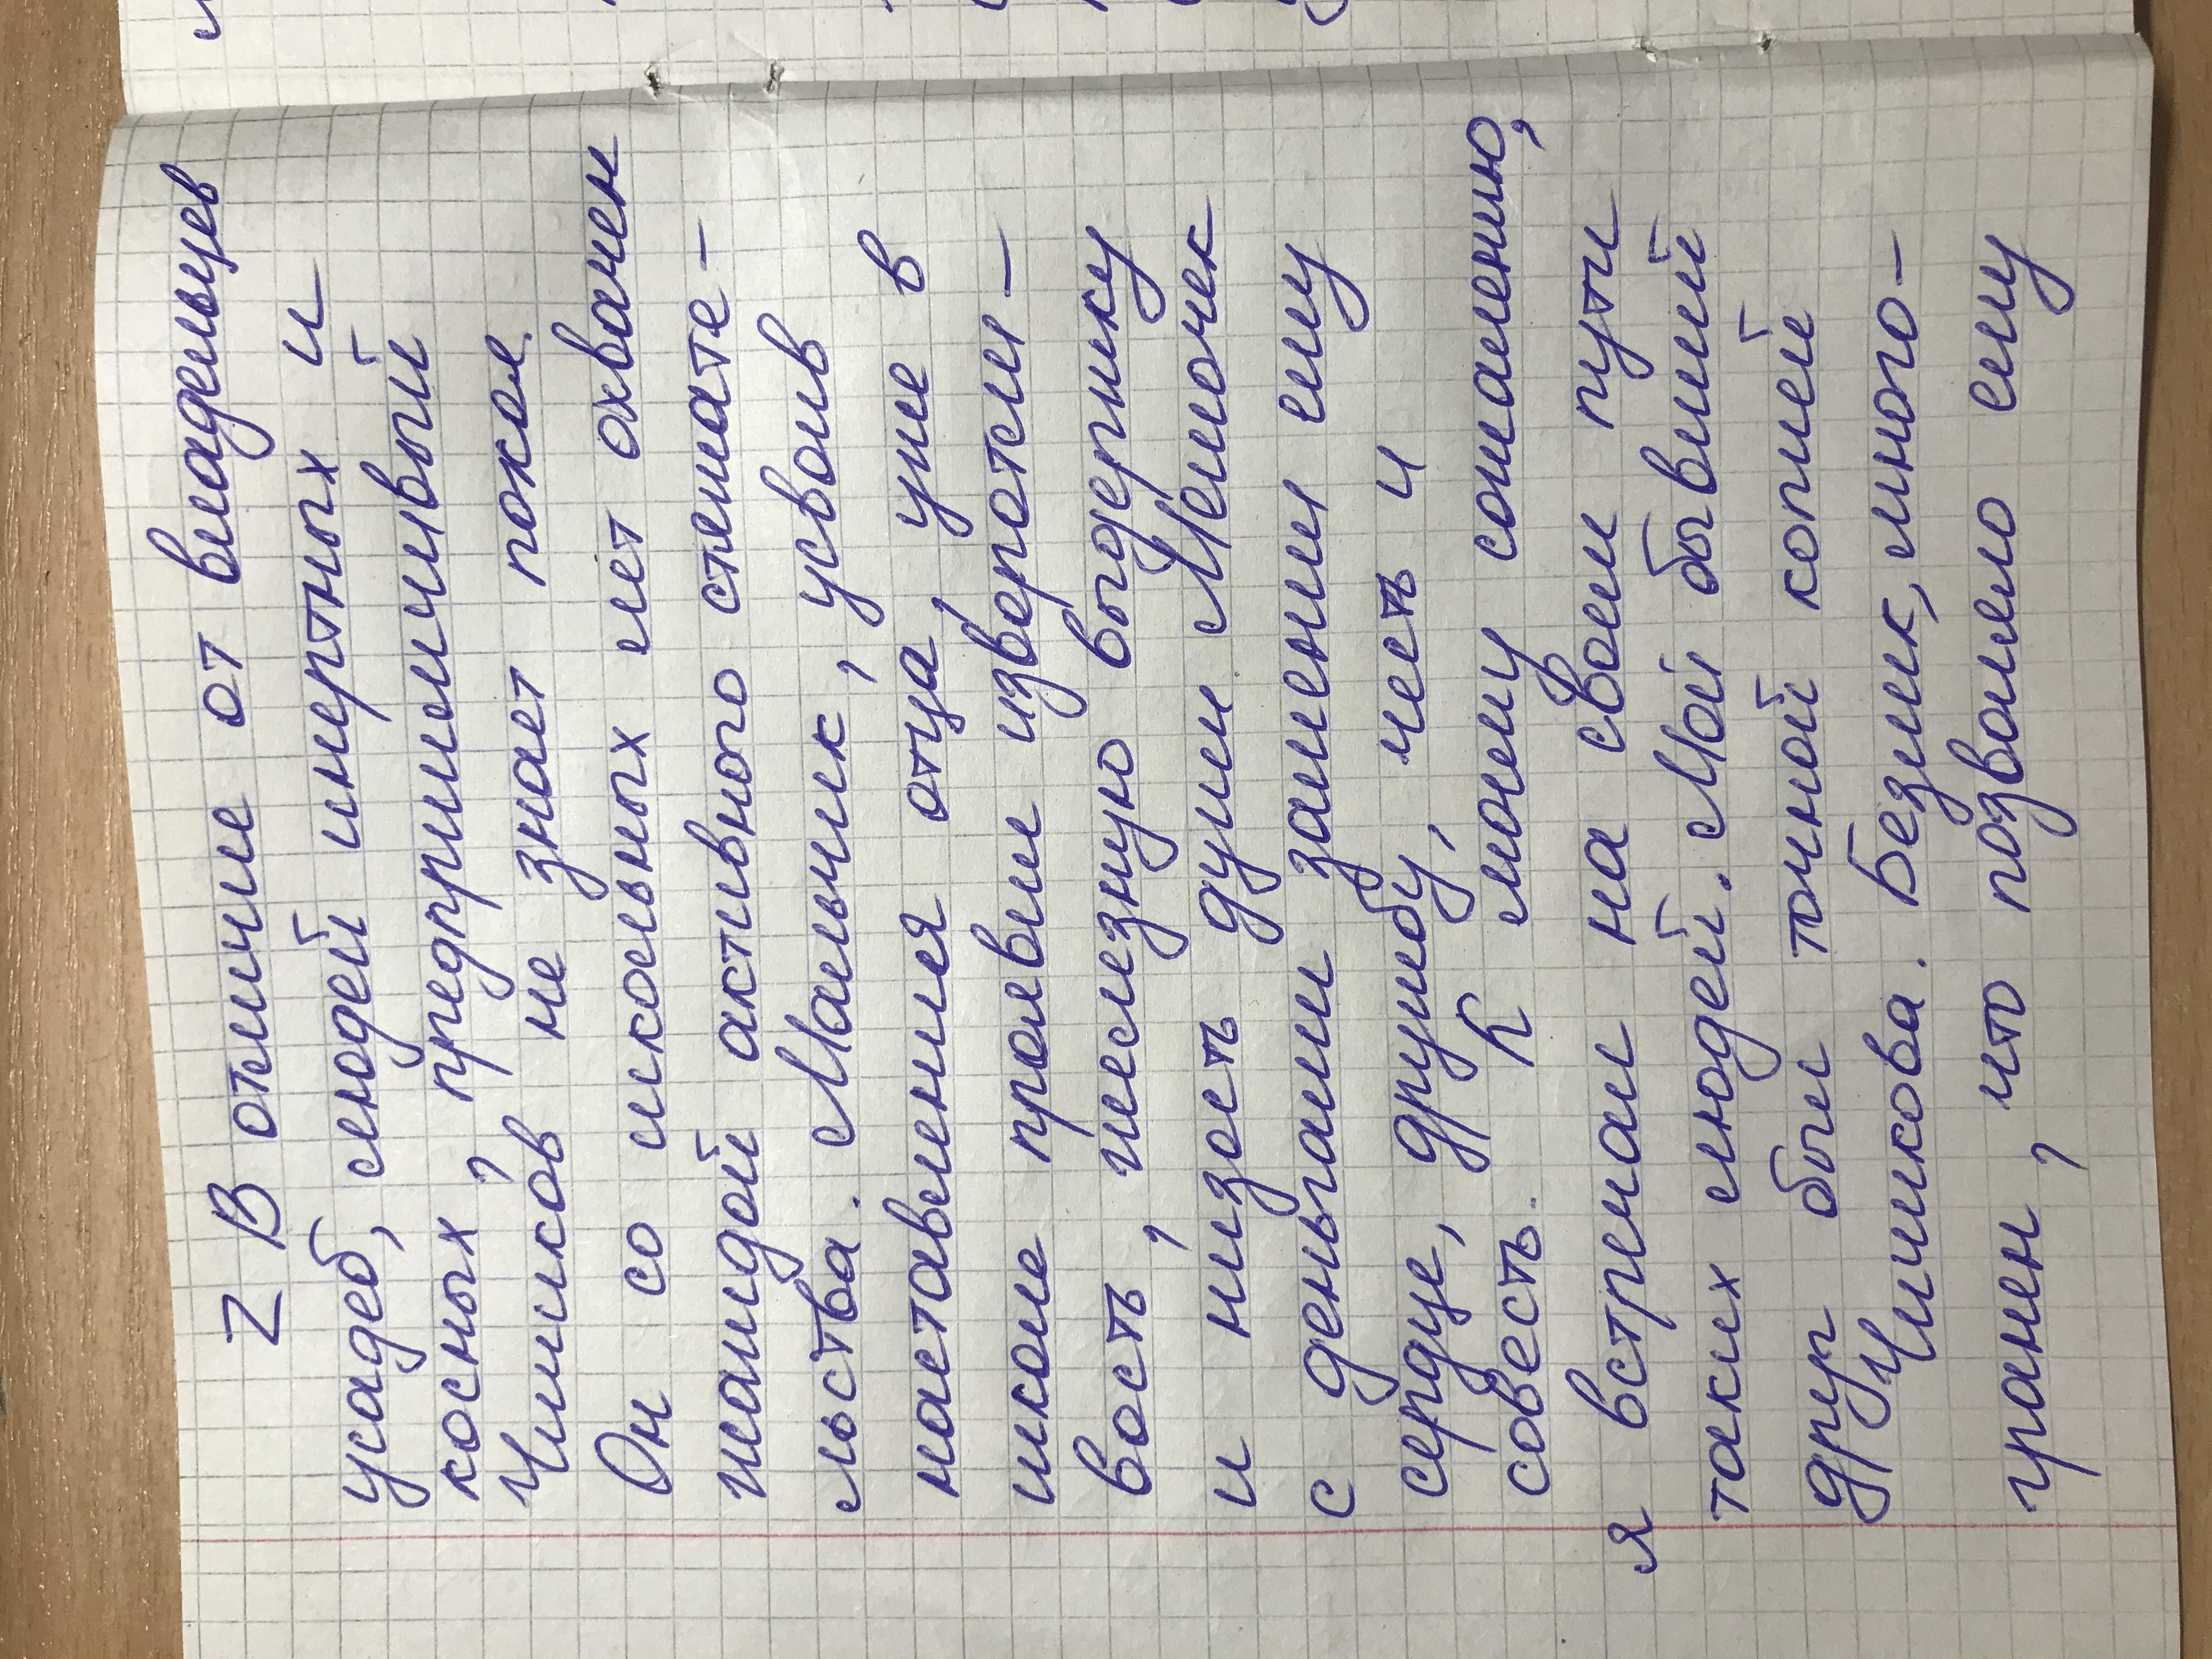 Z В отличие от владельцев
усадеб, людей инертных и
косных, предприимчивый
Чичиков не знает покоя.
Он со школьных лет охвачен
жаждой активного стяжате-
льства. Мальчик, усвоив
наставления отца, уже в
школе проявил изворотли-
вость, железную выдержку
и низость души. Мешочек
с деньгами заменил ему
сердце, дружбу, честь и
совесть. К моему сожалению,
я встречал на своем пути
таких людей. Мой бывший
друг был точной копией
Чичикова. Бедняк, много-
гранен, что позволяло ему